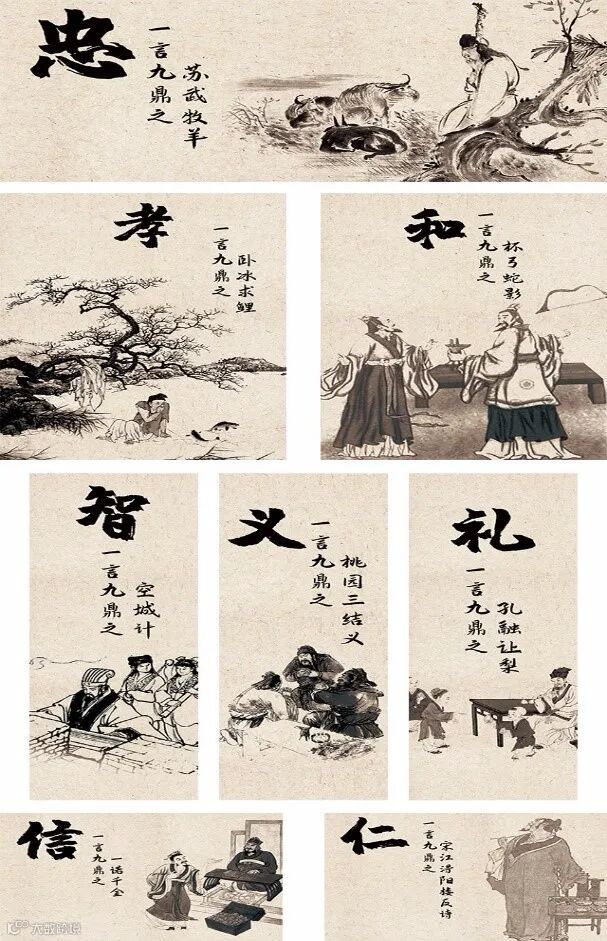 忠
一言九鼎之
苏武牧羊
孝
一言九鼎之
卧冰求鲤
和
一言九鼎之
杯弓蛇影
智
一言九鼎之
空城计
义
一言九鼎之
桃园三结义
礼
一言九鼎之
孔融让梨
信
一言九鼎之
一诺千金
仁
一言九鼎之
宋江浔阳楼反诗